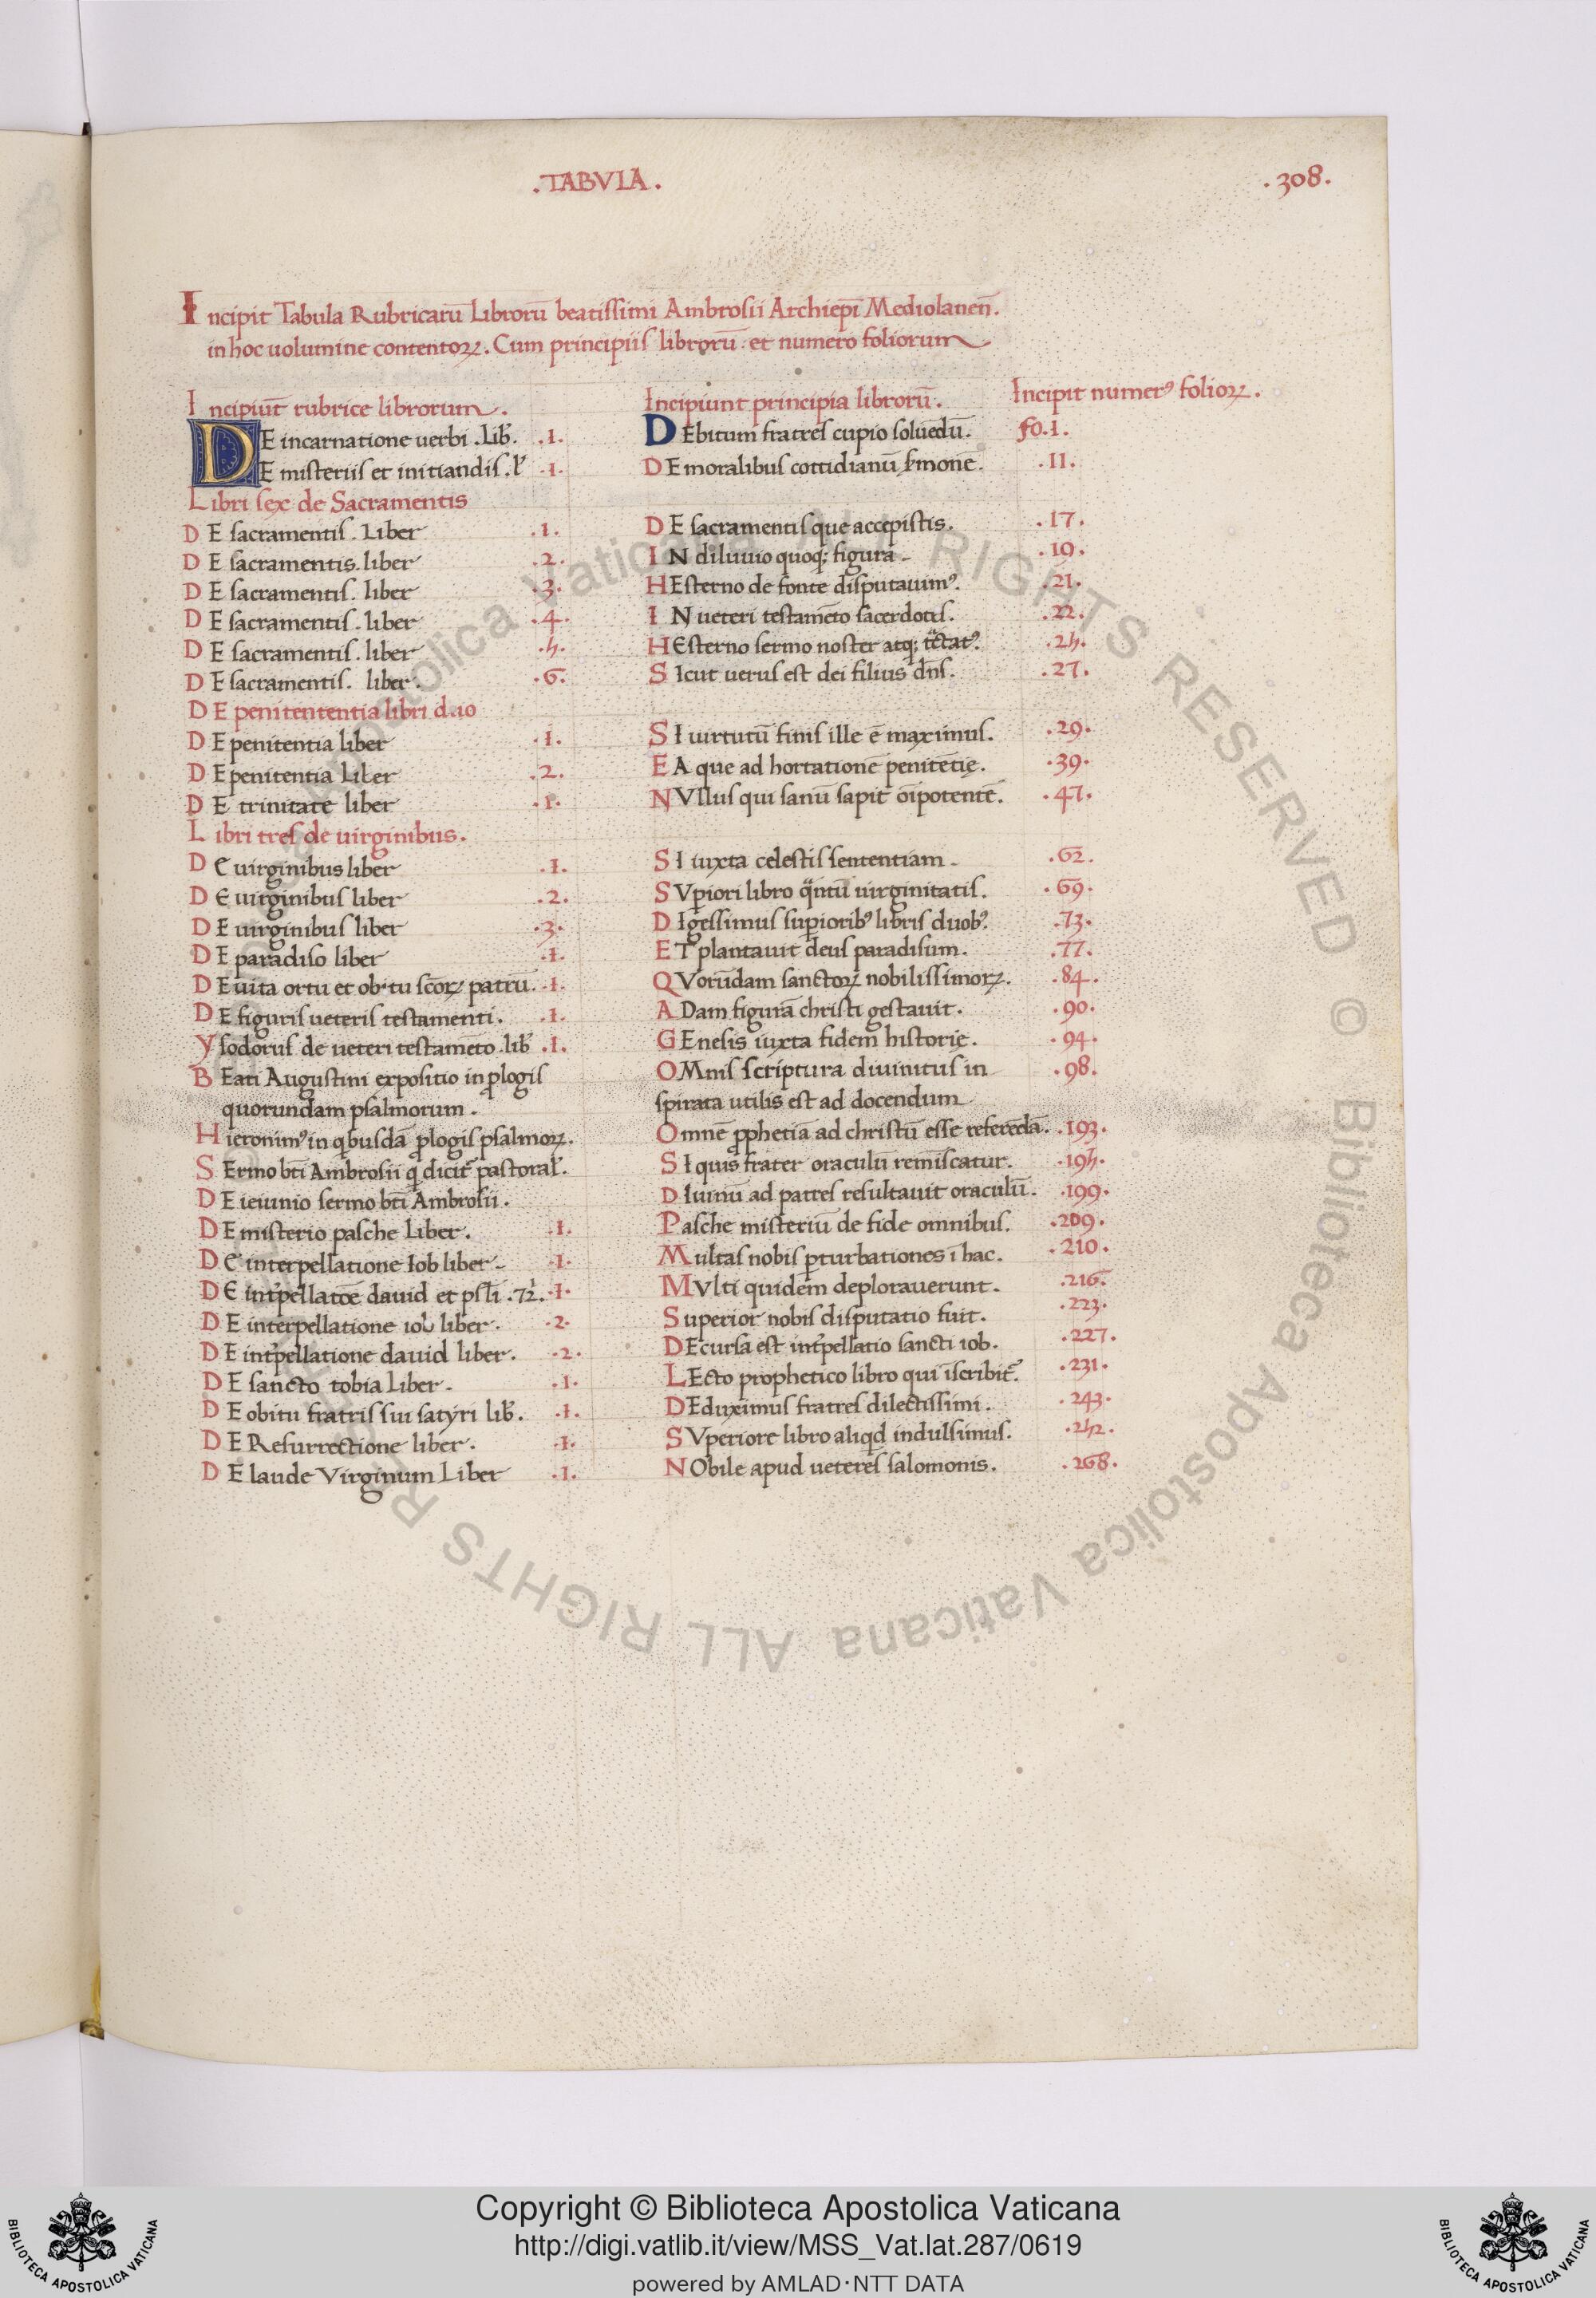 .TABVLA.
.308.
Incipit Tabula Rubricarū Librorū beatissimi Ambrosii Archiep̄i Mediolanen̄.
in hoc uolumine contentoꝝ. Cum principiis librorū. et numero foliorum
Incipiūt rubrice librorum. Incipiunt principia librorū. Incipit numerꝰ folioꝝ.
DE incarnatione uerbi .Lib̄. .1. DEbitum fratres cupio soluēdū. fo.1.
DE misteriis et initiandis .l̄ .1. DE moralibus cottidianū s̄monē. .11.
Libri sex de Sacramentis
DE sacramentis. Liber .1. DE sacramentis que accepistis. .17.
DE sacramentis. liber .2. IN diluuio quoq; figura .19.
DE sacramentis. liber .3. HEsterno de fonte disputauimꝰ. .21.
DE sacramentis. liber .4. IN ueteri testamēto sacerdotes. .22.
DE sacramentis. liber .5. HEsterno sermo noster atq; t̄ctatꝰ. .25.
DE sacramentis. liber. .6. Sicut uerus est dei filius dn̄s. .27.
DE penitententia libri duo
DE penitentia liber .1. SI uirtutū finis ille ē maximus. .29.
DE penitentia Liber .2. EA que ad hortationē penitētię. .39.
DE trinitate liber .1. NVllus qui sanū sapit oīpotentē. .47.
Libri tres de uirginibus.
DE uirginibus liber .1. SI iuxta celestis sententiam. .62.
DE uirginibus liber .2. SVꝑiori libro q̄ntū uirginitatis. .69.
DE uirginibus liber .3. DIgessimus suꝑioribꝰ libris duobꝰ. .73.
DE paradiso liber .1. ET plantauit deus paradisum. .77.
DE uita ortu et obitu sc̄oꝝ patrū. .1. QVorūdam sanctoꝝ nobilissimoꝝ. .84.
DE figuris ueteris testamenti. .1. ADam figurā christi gestauit. .90.
Ysodorus de ueteri testamēto .lib̄ .1. GEnesis iuxta fidem historię. .94.
BEati Augustini expositio in ꝓlogis OMnis scriptura diuinitus in .98.
quorundam psalmorum. spirata utilis est ad docendum
Hieronimꝰ in q̇busdā ꝓlogis psalmoꝝ. Omnē ꝓphetiā ad christū esse referēdā. .193.
SErmo bt̄i Ambrosii q̄ dicit̄ pastoral̄. SI quis frater oraculū reminīscatur. .195.
DE ieiunio sermo bt̄i Ambrosii. DIuinū ad patres resultauit oraculū. .199.
DE misterio pasche Liber. .1. Pasche misteriū de fide omnibus. .209.
DE interpellatione Iob liber .1. Multas nobis ꝑturbationes ī hac. .210.
DE int̄pellatōe dauid et psl̄i .72. .1. MVlti quidem deplorauerunt. .216.
DE interpellatione iob liber. .2. Superior nobis disputatio fuit. .223.
DE int̄pellatione dauid liber. .2. DEcursa est int̄pellatio sancti iob. .227.
DE sancto tobia Liber. .1. LEcto prophetico libro qui īscribit̄. .231.
DE obitu fratris sui satyri lib̄. .1. DEduximus fratres dilectissimi. .243.
DE Resurrectione liber. .1. SVperiore libro aliq̇d indulsimus. .252.
DE laude Virginum Liber .1. NObile apud ueteres salomonis. .268.
© Biblioteca Apostolica Vaticana ALL RIGHTS RESERVED
Copyright © Biblioteca Apostolica Vaticana
http://digi.vatlib.it/view/MSS_Vat.lat.287/0619
powered by AMLAD·NTT DATA
BIBLIOTECA APOSTOLICA VATICANA
BIBLIOTECA APOSTOLICA VATICANA